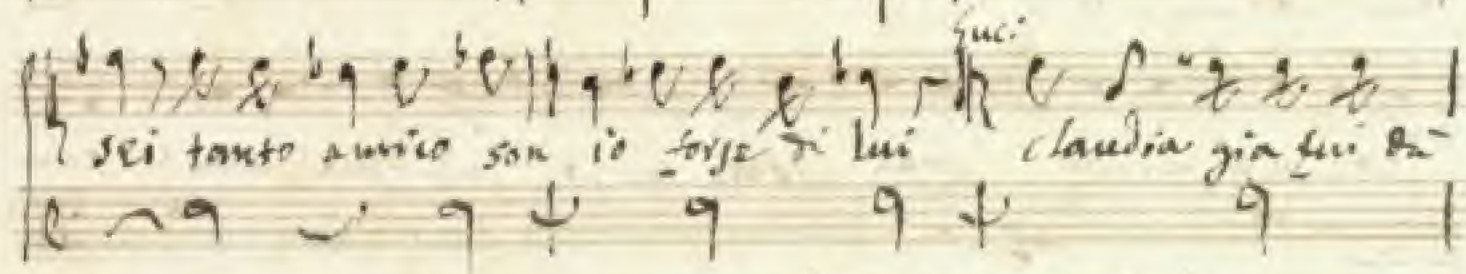 Luc:
sei tanto amico son io forse di lui claudia gia fui